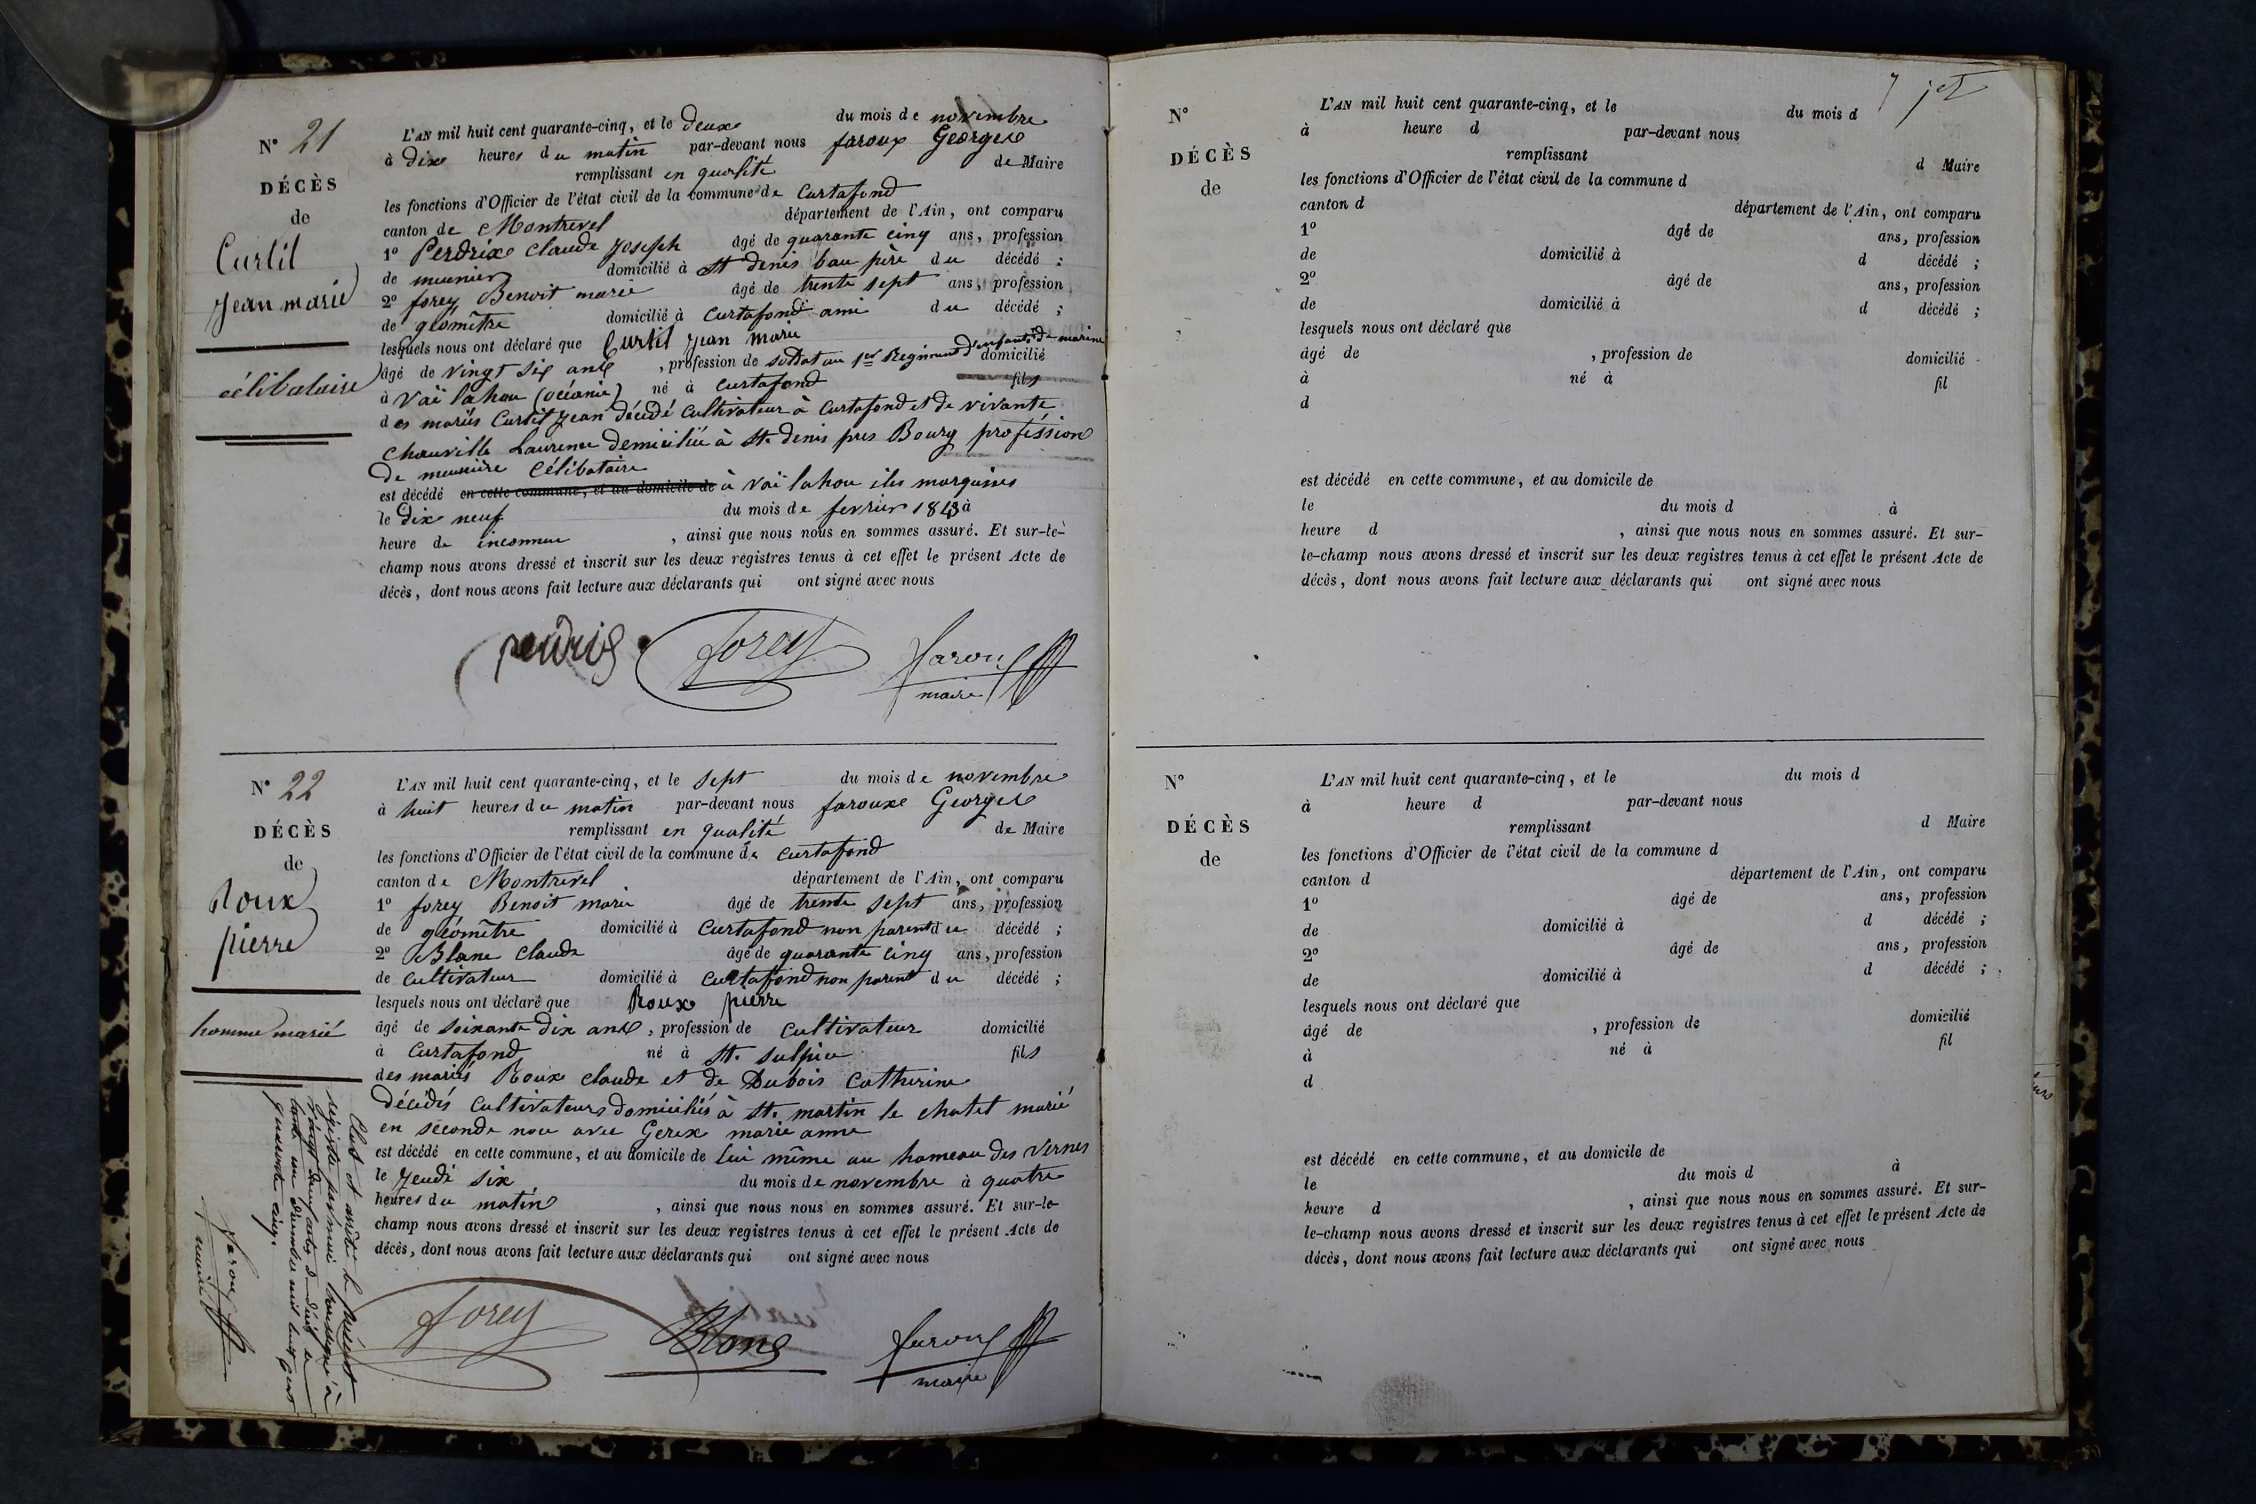 N° 21
DÉCÈS
de
Curtil
Jean marie
célibataire
L'AN mil huit cent quarante-cinq, et le deux du mois de novembre
à dix heures du matin par-devant nous faroux Georges
remplissant en qualité de Maire
les fonctions d'Officier de l'état civil de la commune de Curtafond
canton de Montrevel département de l'Ain, ont comparu
1° Perdrix Claude Joseph âgé de quarante cinq ans, profession
de meunier domicilié à St denis bau père du décédé ;
2° forey Benoit marie âgé de trente sept ans, profession
de géomètre domicilié à Curtafond ami du décédé ;
lesquels nous ont déclaré que Curtil Jean marie
âgé de vingt six ans, profession de soldat au 1er Regiment d'enfanterie de marine domicilié
à Vaï lahou (océanie) né à Curtafond fils
des mariés Curtil Jean décédé Cultivateur à Curtafond et de vivante
Chauville Laurence demiciliée à St. denis pres Bourg proféssion
de meunière Célibataire
est décédé en cette commune, et au domicile de à vaï lahou iles marquises
le dix neuf du mois de fevrier 1843 à
heure de inconnue , ainsi que nous nous en sommes assuré. Et sur-le-
champ nous avons dressé et inscrit sur les deux registres tenus à cet effet le présent Acte de
décès, dont nous avons fait lecture aux déclarants qui ont signé avec nous
perdrix forey faroux
maire
N° 22
DÉCÈS
de
Roux
pierre
homme marié
L'AN mil huit cent quarante-cinq, et le sept du mois de novembre
à huit heures du matin par-devant nous faroux Georges
remplissant en qualité de Maire
les fonctions d'Officier de l'état civil de la commune de Curtafond
canton de Montrevel département de l'Ain, ont comparu
1° forey Benoit marie âgé de trente sept ans, profession
de géomètre domicilié à Curtafond non parent du décédé ;
2° Blanc Claude âgé de quarante cinq ans, profession
de Cultivateur domicilié à Curtafond non parent du décédé ;
lesquels nous ont déclaré que Roux pierre
âgé de soixante dix ans, profession de Cultivateur domicilié
à Curtafond né à St. Sulpice fils
des mariés Roux Claude et de Dubois Catherine
décédés Cultivateurs domiciliés à St. martin le chatel marié
en seconde noce avec Gerex marie anne
est décédé en cette commune, et au domicile de lui même au hameau des Vernes
le Jeudi six du mois de novembre à quatre
heures du matin , ainsi que nous nous en sommes assuré. Et sur-le-
champ nous avons dressé et inscrit sur les deux registres tenus à cet effet le présent Acte de
décès, dont nous avons fait lecture aux déclarants qui ont signé avec nous
forey Blanc faroux
maire
Clos et arrêté le présent
régistre par moi soussigné à
vingt deux actes de décès le
trente un décembre mil huit cent
quarante cinq.
faroux
maire
N°
DÉCÈS
de
L'AN mil huit cent quarante-cinq, et le du mois d
à heure d par-devant nous
remplissant d Maire
les fonctions d'Officier de l'état civil de la commune d
canton d département de l'Ain, ont comparu
1° âgé de ans, profession
de domicilié à d décédé ;
2° âgé de ans, profession
de domicilié à d décédé ;
lesquels nous ont déclaré que
âgé de , profession de domicilié
à né à fil
d
est décédé en cette commune, et au domicile de
le du mois d à
heure d , ainsi que nous nous en sommes assuré. Et sur-
le-champ nous avons dressé et inscrit sur les deux registres tenus à cet effet le présent Acte de
décès, dont nous avons fait lecture aux déclarants qui ont signé avec nous
N°
DÉCÈS
de
L'AN mil huit cent quarante-cinq, et le du mois d
à heure d par-devant nous
remplissant d Maire
les fonctions d'Officier de l'état civil de la commune d
canton d département de l'Ain, ont comparu
1° âgé de ans, profession
de domicilié à d décédé ;
2° âgé de ans, profession
de domicilié à d décédé ;
lesquels nous ont déclaré que
âgé de , profession de domicilié
à né à fil
d
est décédé en cette commune, et au domicile de
le du mois d à
heure d , ainsi que nous nous en sommes assuré. Et sur-
le-champ nous avons dressé et inscrit sur les deux registres tenus à cet effet le présent Acte de
décès, dont nous avons fait lecture aux déclarants qui ont signé avec nous